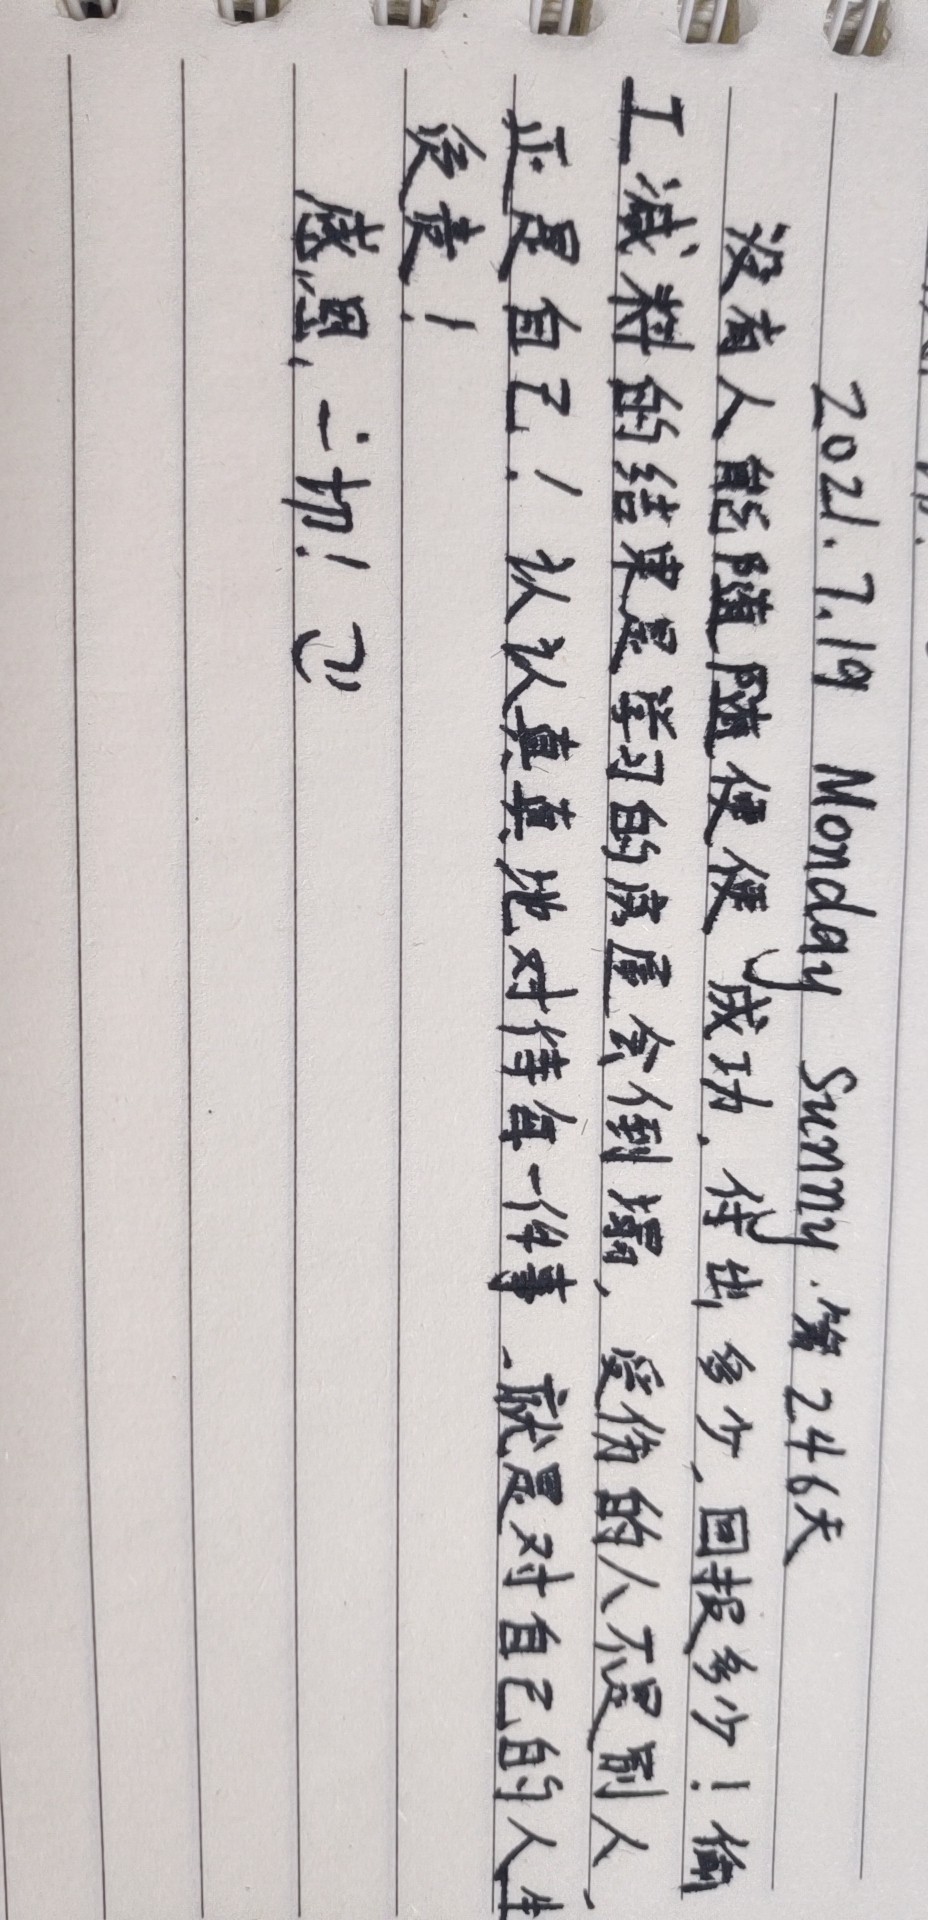 2021.7.19 Monday Sunny.第246天
没有人能随随便便成功、付出多少、回报多少！偷
工减料的结果是学习的房屋会倒塌，受伤的人不是别人、
正是自己！认认真真地对待每一件事、就是对自己的人生
负责！
感恩，一切！